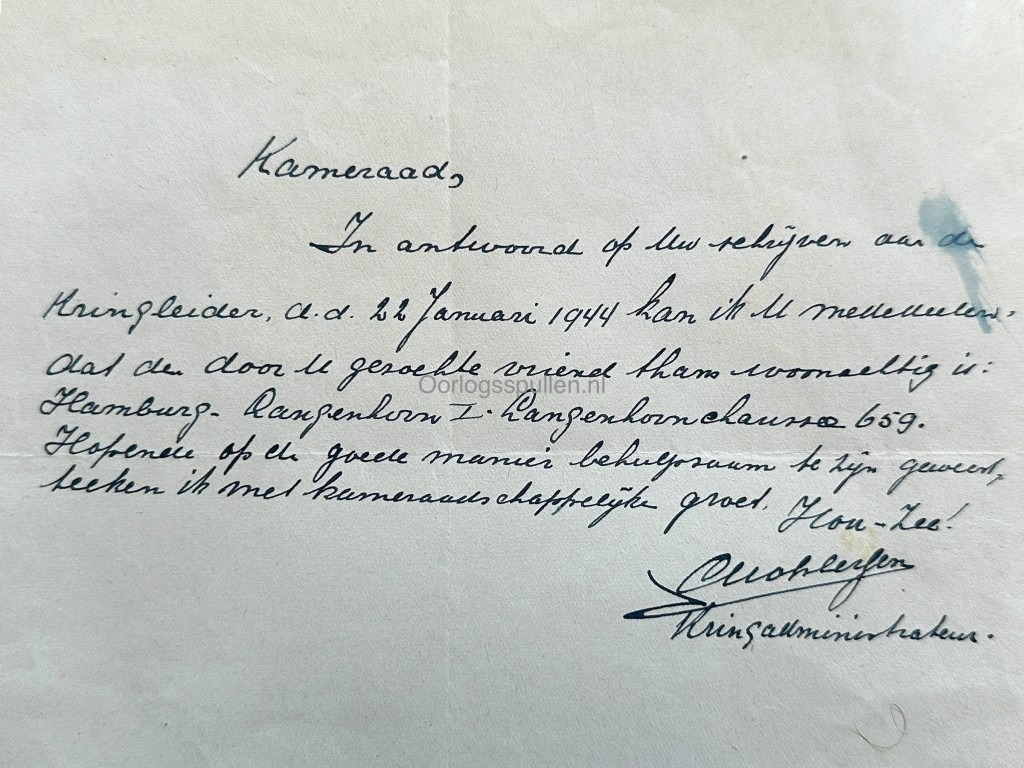 Kameraad,
In antwoord op Uw schrijven aan de
Kringleider, d.d. 22 Januari 1944 kan ik U mededeelen,
dat de door U gezochte vriend thans woonachtig is:
Oorlogsspullen.nl
Hamburg - Langenhorn I. Langenhornchaussee 659.
Hopende op de goede manier behulpzaam te zijn geweest,
teeken ik met kameraadschappelijke groet. Hou-Zee!
Kringadministrateur.